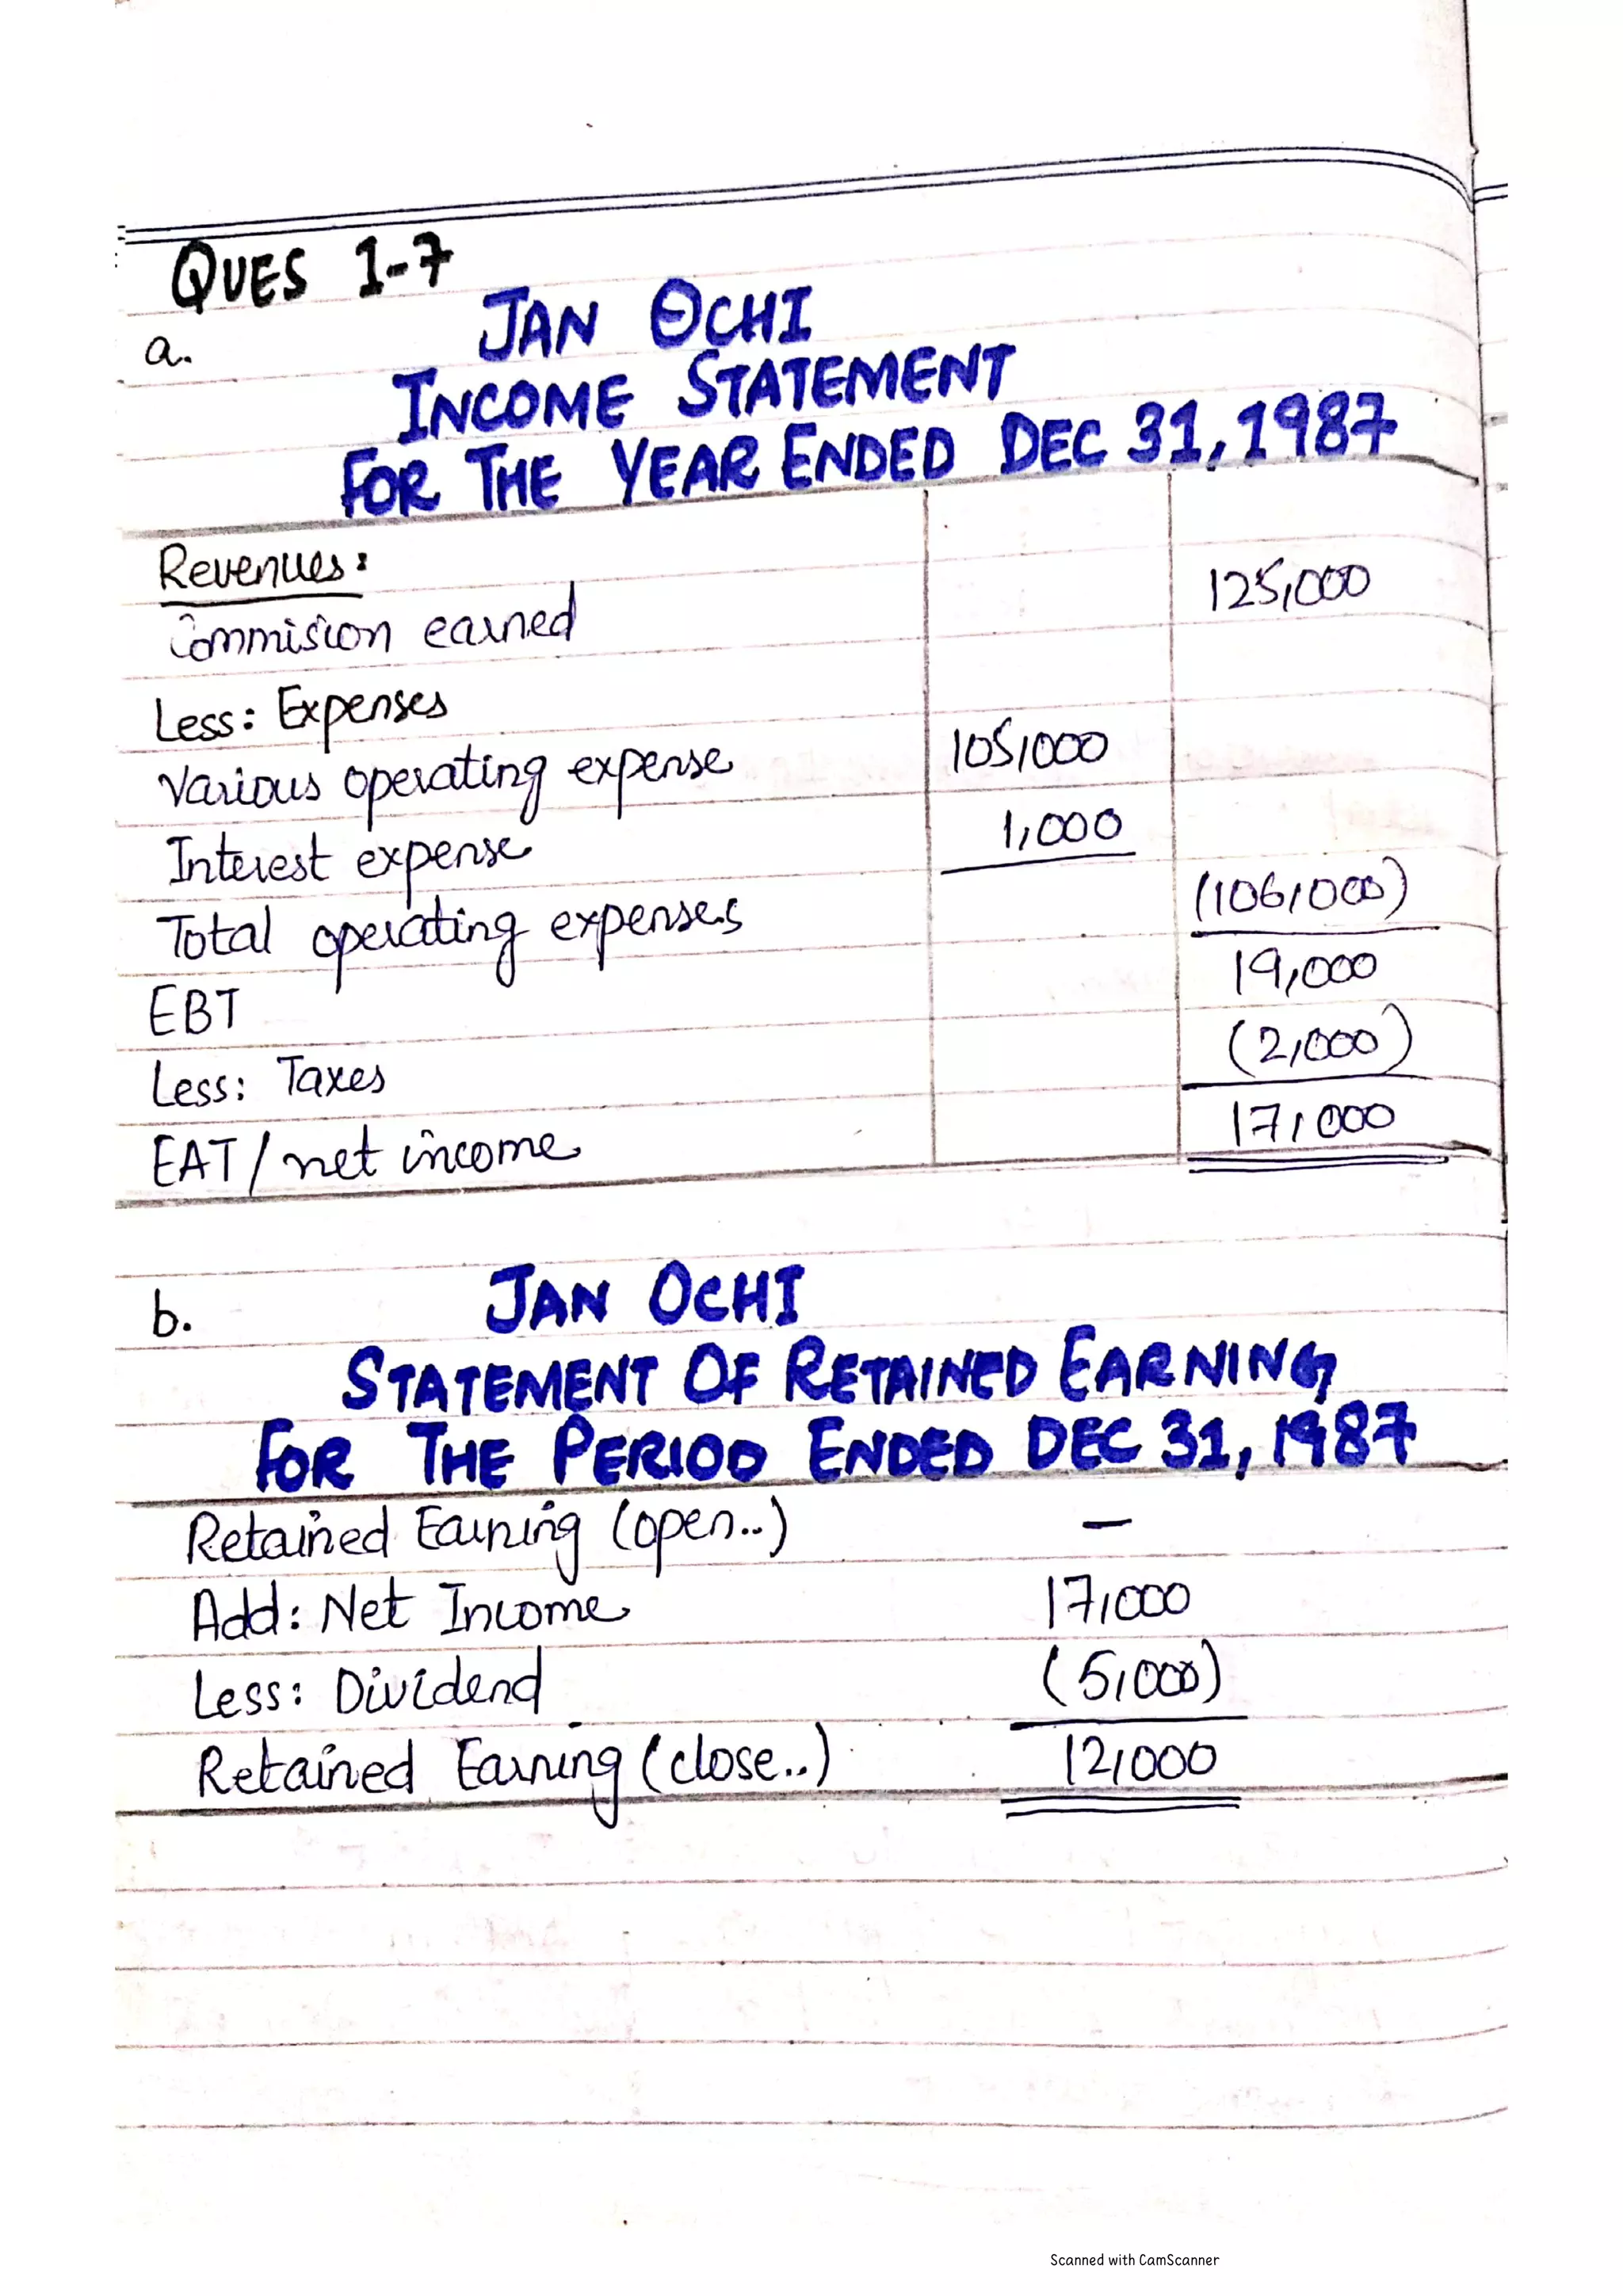 QUES 1-7
a.
JAN OCHI
INCOME STATEMENT
FOR THE YEAR ENDED DEC 31, 1987
Revenues:
Commision earned 125,000
Less: Expenses
Various operating expense 105,000
Interest expense 1,000
Total operating expenses (106,000)
EBT 19,000
Less: Taxes (2,000)
EAT/net income 17,000
b.
JAN OCHI
STATEMENT OF RETAINED EARNING
FOR THE PERIOD ENDED DEC 31, 1987
Retained Earning (open..) —
Add: Net Income 17,000
Less: Dividend (5,000)
Retained Earning (close..) 12,000
Scanned with CamScanner